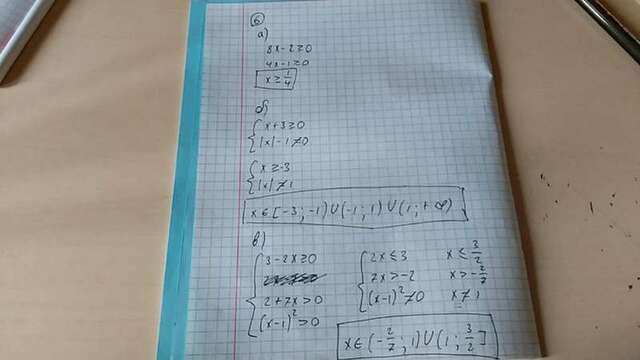 6
а)
8x-2≥0
4x-1≥0
x≥1/4
б)
{ x+3≥0
|x|-1≠0
{ x≥-3
|x|≠1
x∈[-3;-1)∪(-1;1)∪(1;+∞)
в)
{ 3-2x≥0
2+7x>0
(x-1)²>0
{ 2x≤3
7x>-2
(x-1)²≠0
x≤3/2
x>-2/7
x≠1
x∈(-2/7;1)∪(1;3/2]